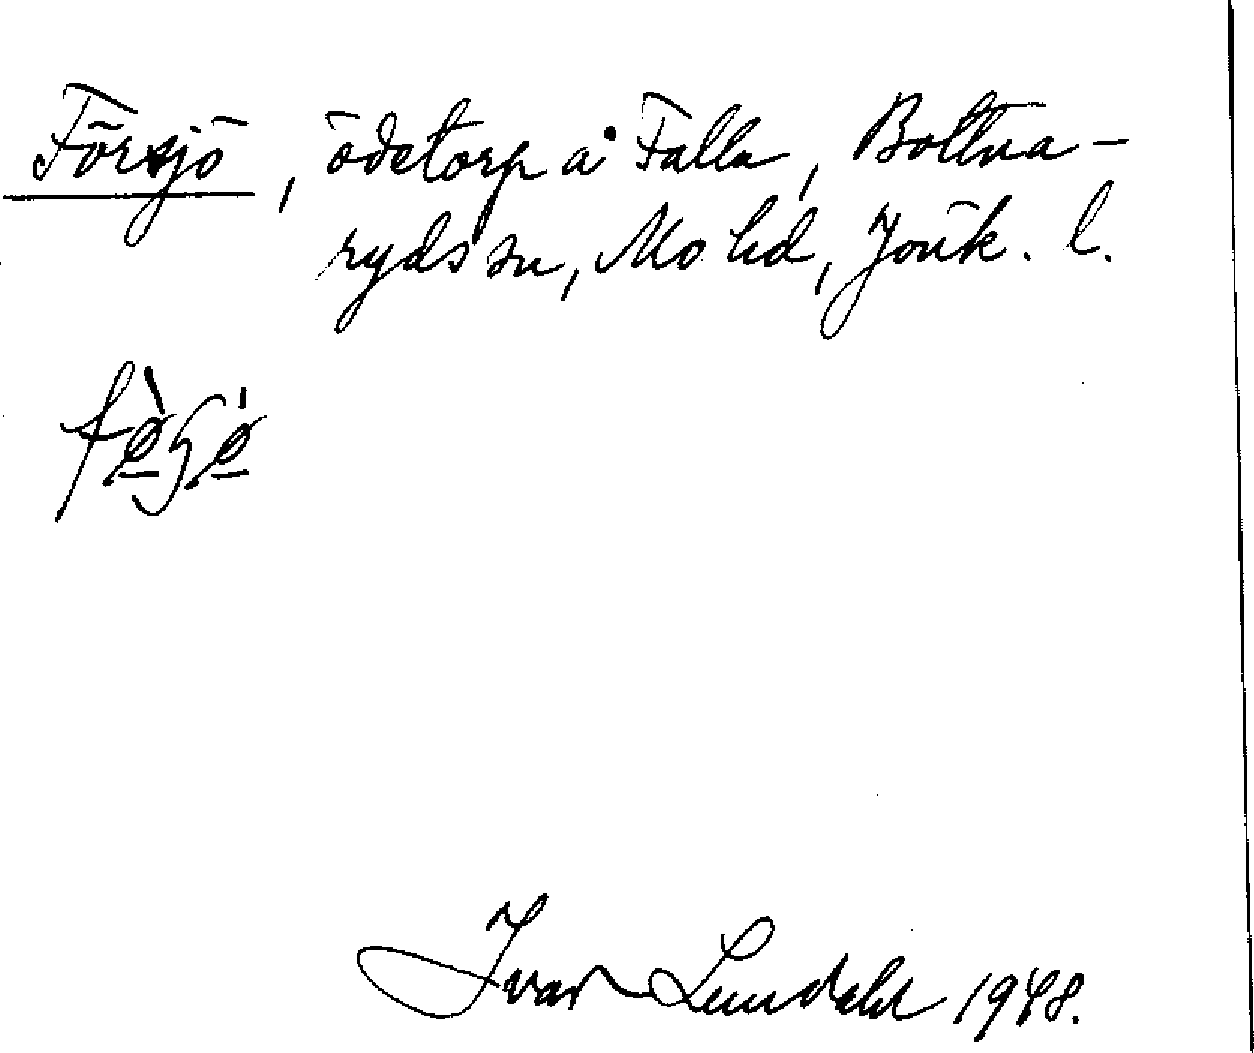 Försjö, ödetorp å Falla, Bottna-
ryds sn, Mo hd, Jönk. l.
Ivar Lundahl 1948.